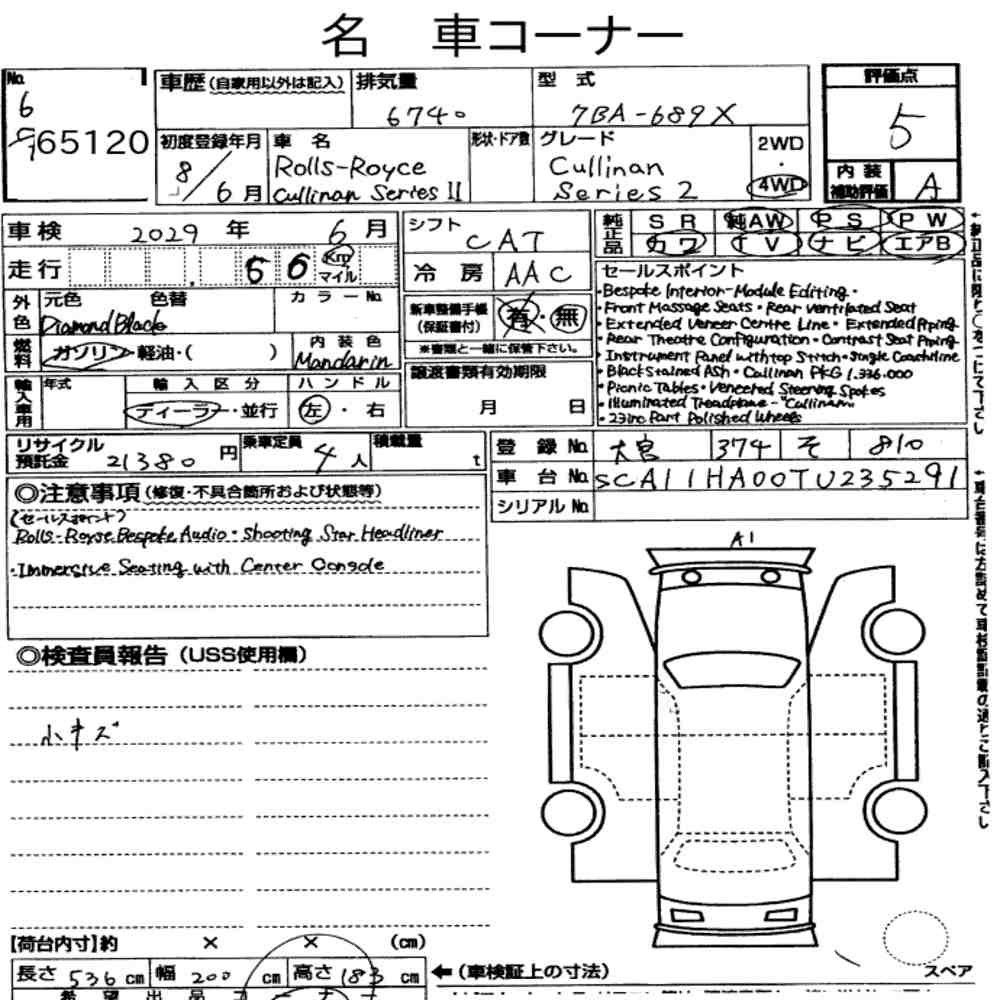 名 車コーナー
No.
6
65120
車歴 (自家用以外は記入)
排気量
6740
型 式
7BA-689X
評価点
5
内 装
補助評価
A
初度登録年月
8/6月
車 名
Rolls-Royce
Cullinan Series II
形状・ドア数
グレード
Cullinan
Series 2
2WD
・
4WD
車検 2029 年 6 月
走行 66 Km マイル
シフト CAT
冷 房 AAC
純正品
SR 純AW PS PW
カワ TV ナビ エアB
外色
元色 色替
Diamond Black
カラーNo.
燃料
ガソリン・軽油・( )
内 装 色
Mandarin
新車整備手帳
(保証書付)
有・無
※書類と一緒に保管下さい。
セールスポイント
・Bespoke Interior-Module Editing・
・Front Massage Seats・Rear Ventilated Seat
・Extended Veneer Centre Line・Extended Piping
・Rear Theatre Configuration・Contrast Seat Piping
・Instrument Panel with top Stitch・Single Coachline
・Black Stained Ash・Cullinan PKG 1.336.000
・Picnic Tables・Veneered Steering Spokes
・Illuminated Treadplate-"Cullinan
・23inc Part Polished Wheels
輸入車用
年式
輸入区分
ディーラー・並行
ハンドル
左・右
譲渡書類有効期限
月 日
リサイクル
預託金
21380 円
乗車定員
4人
積載量
t
登 録 No. 大宮 374 そ 810
車 台 No. SCA11HA00TU235291
シリアル No.
◎注意事項 (修復・不具合箇所および状態等)
(セールスポイント)
Rolls-Royse Bespoke Audio・Shooting Star Headliner
・Immersive Seating with Center Console
◎検査員報告 (USS使用欄)
小キズ
A1
【荷台内寸】約 × × (cm)
長さ 536 cm 幅 200 cm 高さ 183 cm
←(車検証上の寸法)
スペア